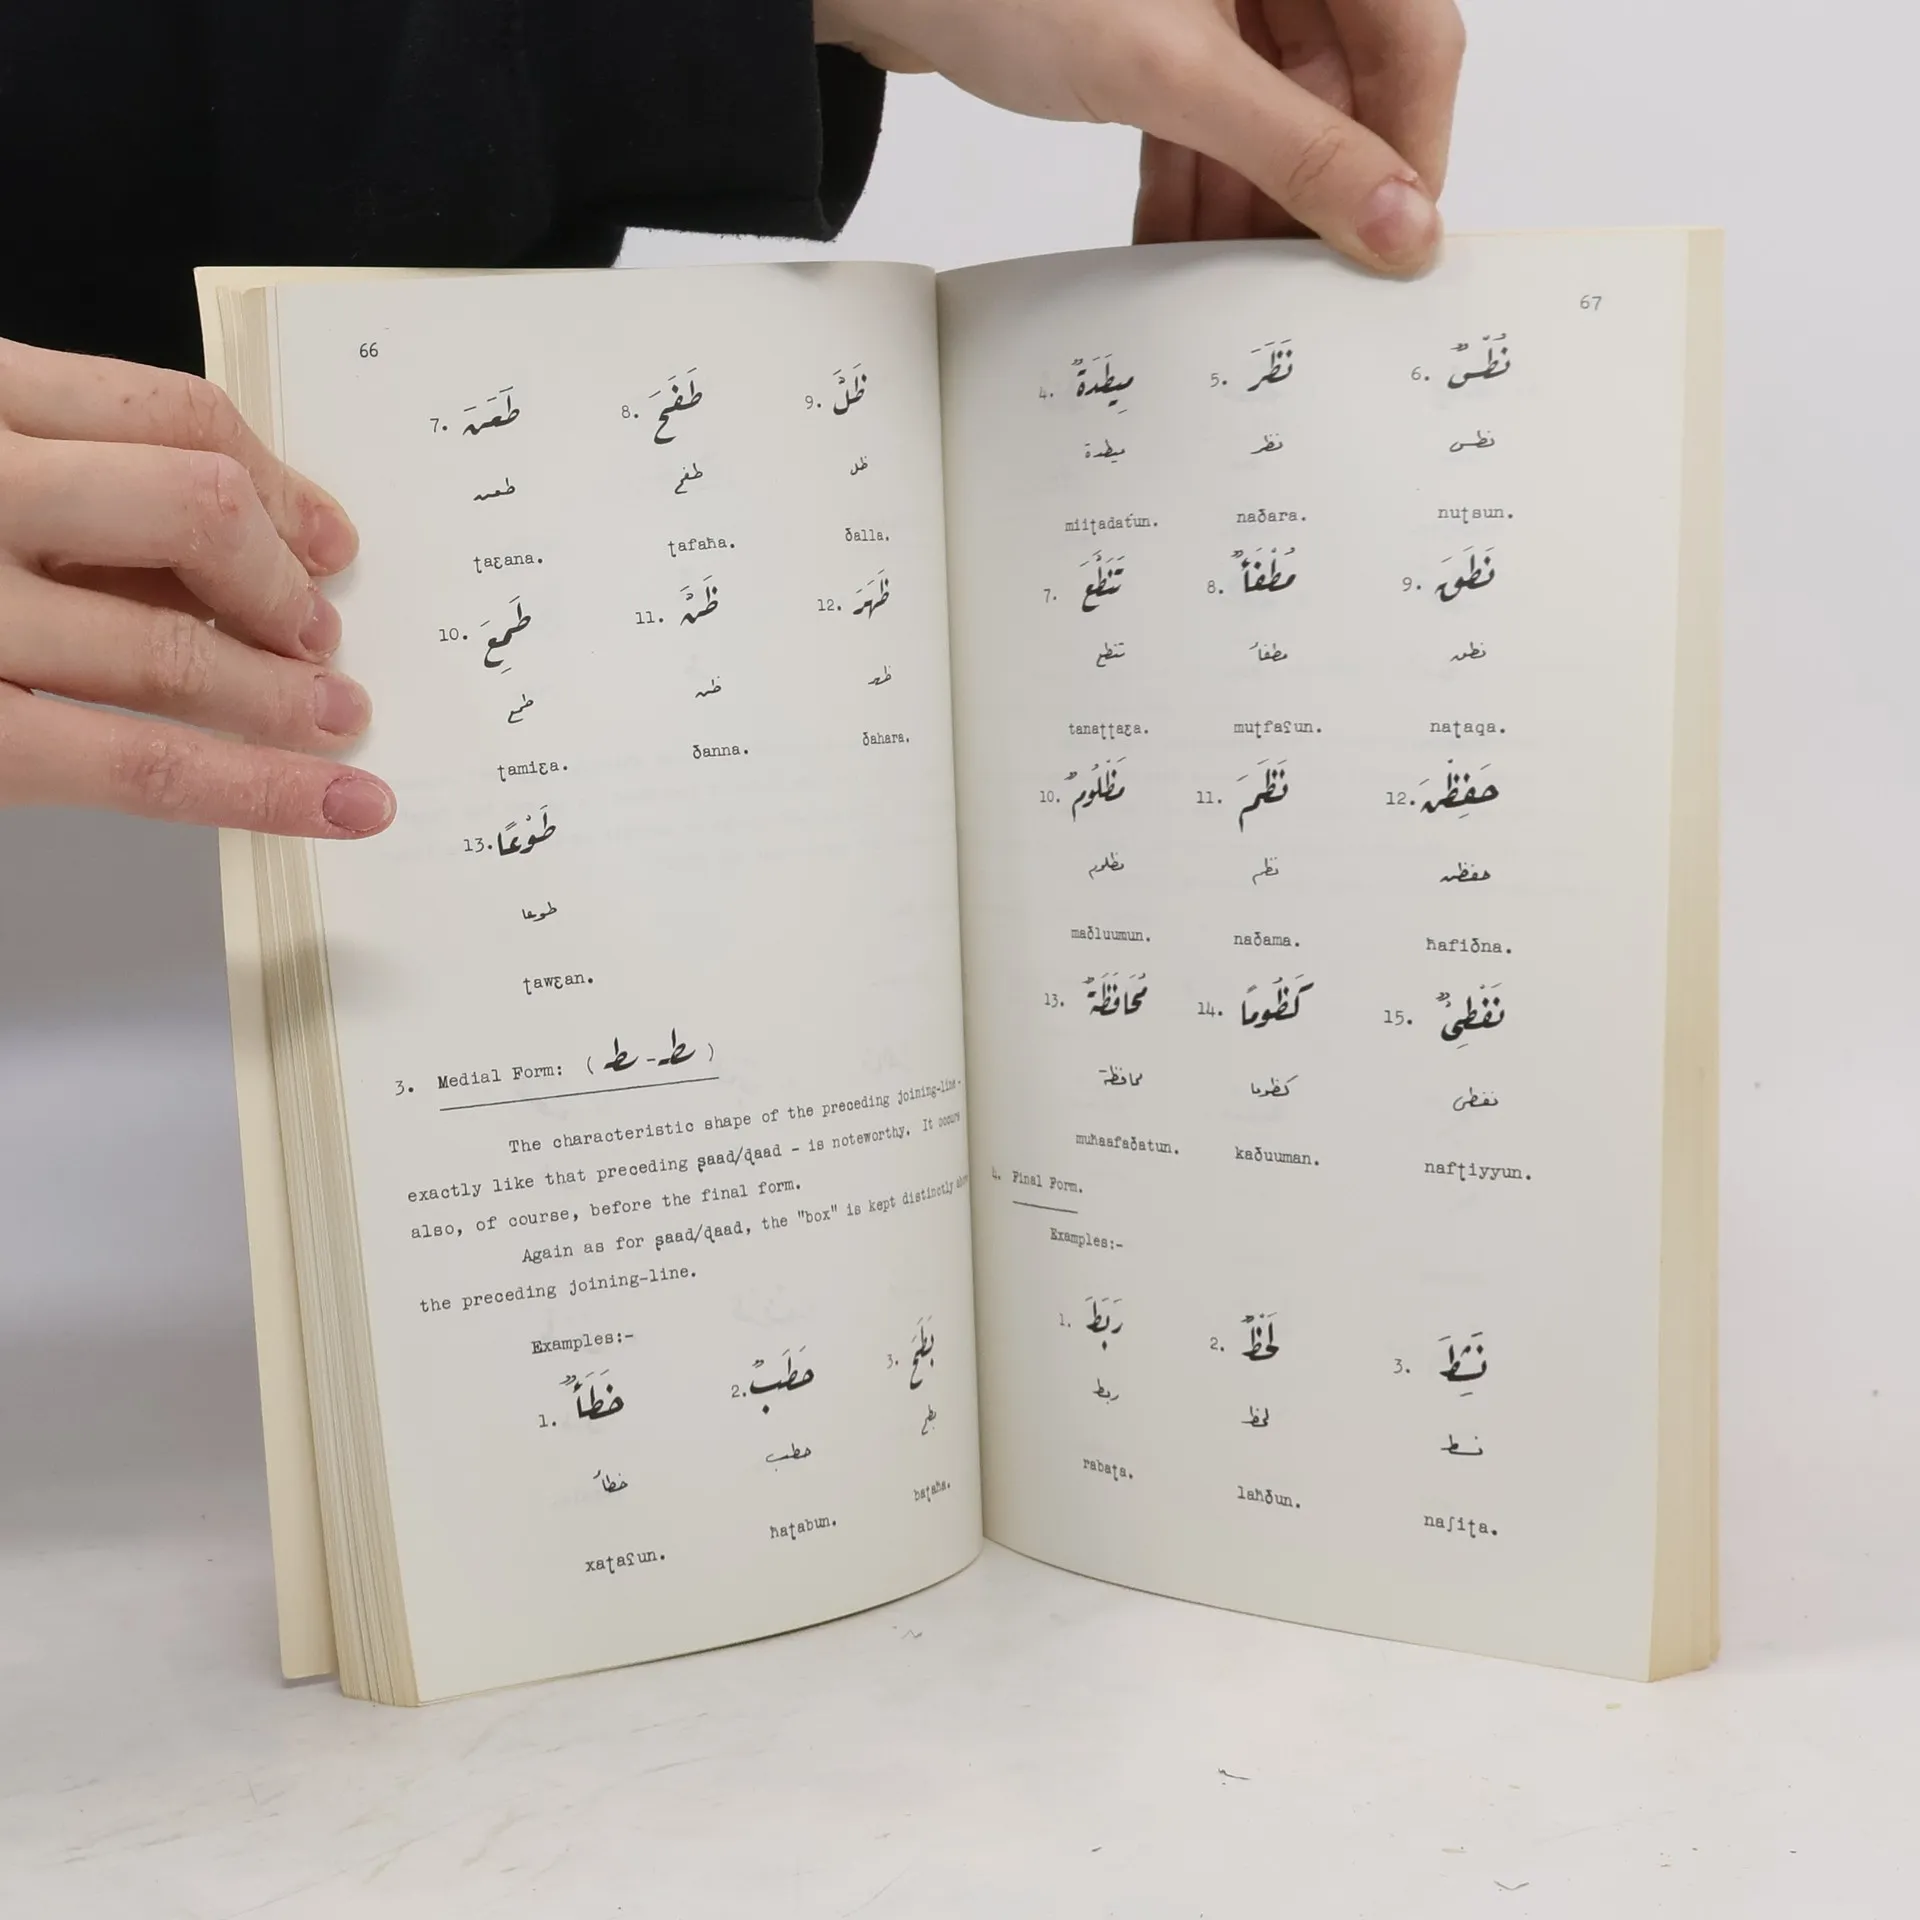 66
7. طَعَنَ 8. طَفَحَ 9. ظَلَّ
طعن طفح ظل
ţaɛana. ţafaħa. ðalla.
10. طَمِعَ 11. ظَنَّ 12. ظَهَرَ
طمع ظن ظهر
ţamiɛa. ðanna. ðahara.
13. طَوْعًا
طوعا
ţawɛan.
3. Medial Form: (ط - ط)
The characteristic shape of the preceding joining-line -
exactly like that preceding ṣaad/ḍaad - is noteworthy. It occurs
also, of course, before the final form.
Again as for ṣaad/ḍaad, the "box" is kept distinctly above
the preceding joining-line.
Examples:-
1. خَطَأٌ 2. حَطَبٌ 3. بَطَحَ
خطأ حطب بطح
xaţaʕun. ħaţabun. baţaħa.
67
4. مِيطَدَةٌ 5. نَظَرَ 6. نُطُسٌ
ميطدة نظر نطس
miiţadatun. naðara. nuţsun.
7. تَنَطَّعَ 8. مُطْفَأٌ 9. نَطَقَ
تنطع مطفأ نطق
tanaţţaɛa. muţfaʕun. naţaqa.
10. مَظْلُومٌ 11. نَظَمَ 12. حَفِظْنَ
مظلوم نظم حفظن
maðluumun. naðama. ħafiðna.
13. مُحَافَظَةٌ 14. كَظُومًا 15. نَفْطِيٌّ
محافظة كظوما نفطي
muħaafaðatun. kaðuuman. nafţiyyun.
4. Final Form.
Examples:-
1. رَبَطَ 2. لَحْظٌ 3. نَشِطَ
ربط لحظ نشط
rabaţa. laħðun. naʃiţa.